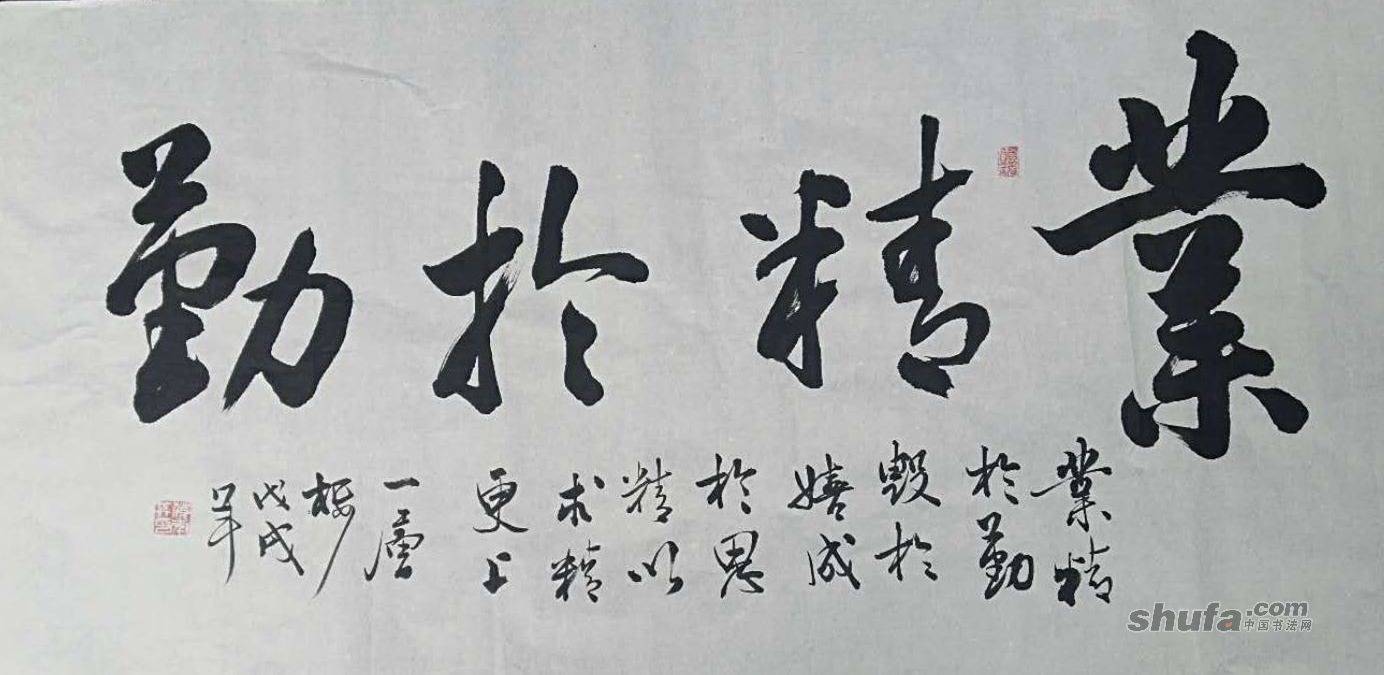 業精於勤
業精
於勤
毀於
嬉成
於思
精以
求精
更上
一層
樓
戊戌
年
shufa.com
中国书法网